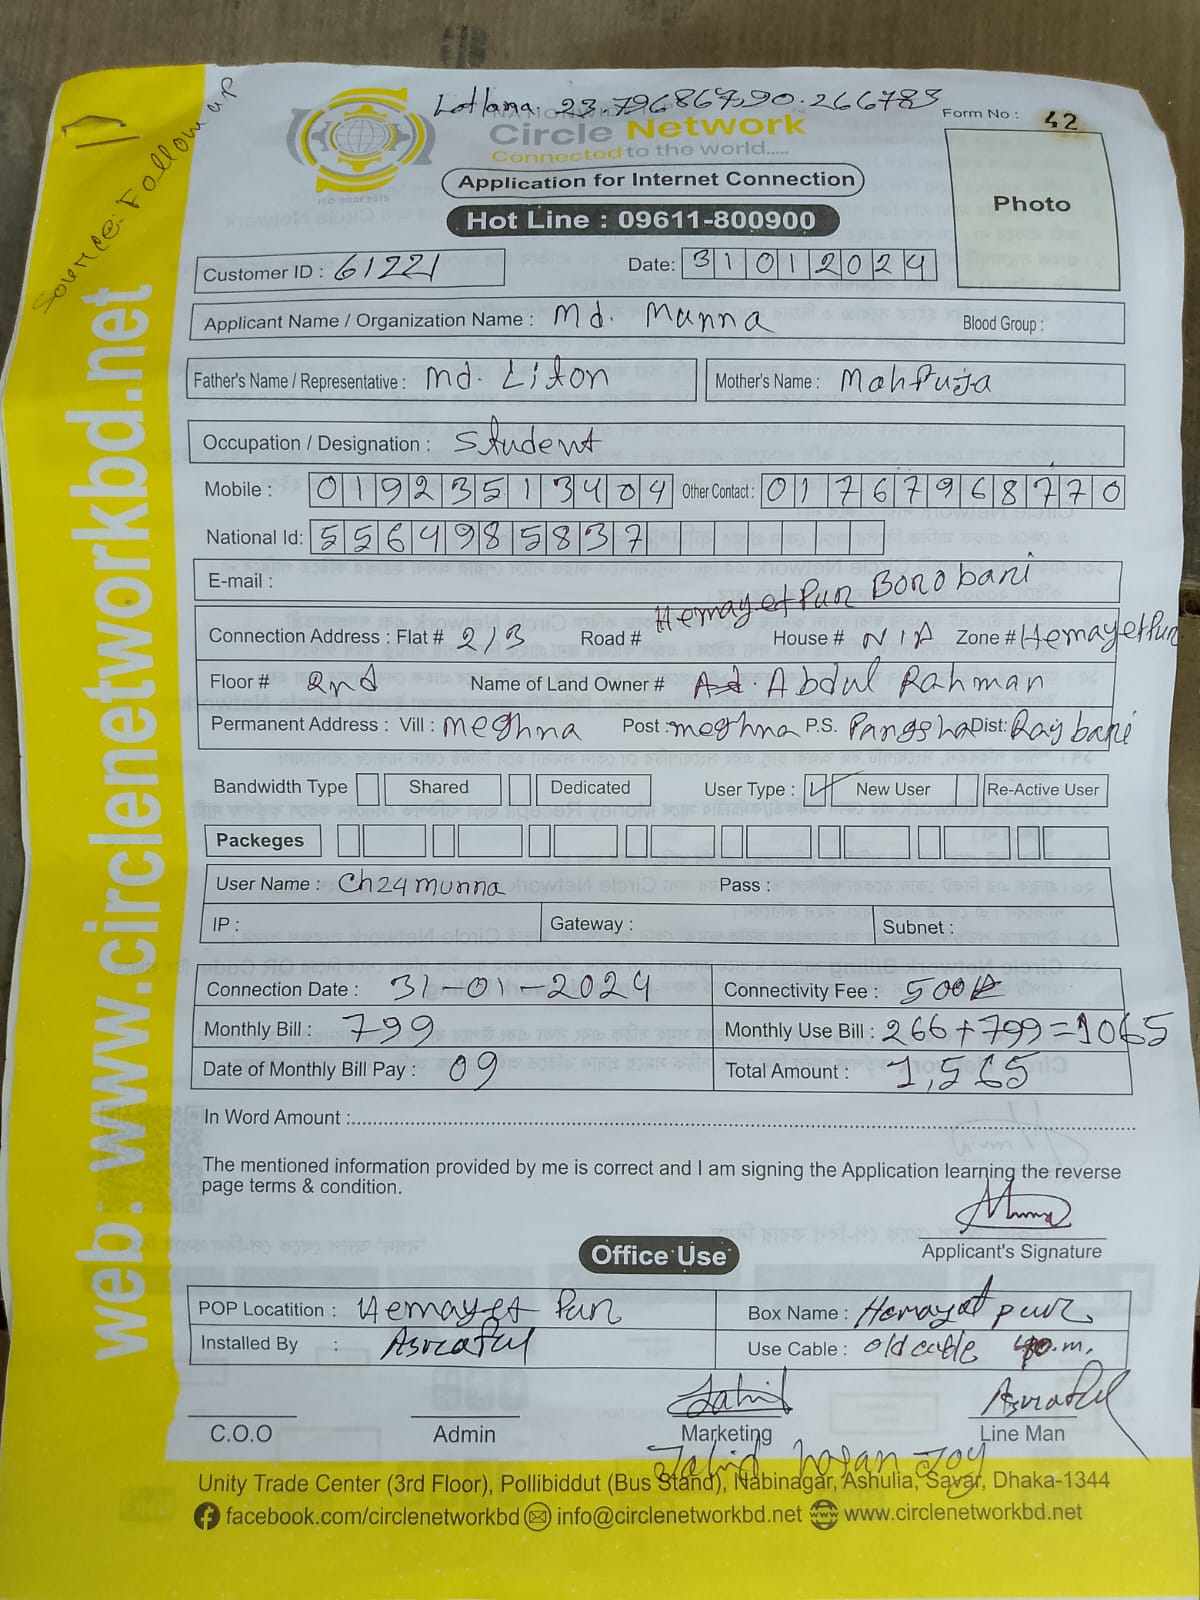 Source: Follow up
Lotlana. 23.796867,90.266783
Circle Network
Connected to the world.....
ISO 9001:2015
Form No : 42
Application for Internet Connection
Photo
Hot Line : 09611-800900
Customer ID : 61221 Date: 31012024
Applicant Name / Organization Name : Md. Manna Blood Group :
Father's Name / Representative : Md. Liton Mother's Name : Mahfuja
Occupation / Designation : Student
Mobile : 01923513404 Other Contact : 01767968770
National Id: 5564985837
E-mail :
Hemayet Pur Boro bari
Connection Address : Flat # 2/3 Road # House # N/A Zone # Hemayetpur
Floor # 2nd Name of Land Owner # Abdul Rahman
Permanent Address : Vill : Meghna Post : meghna P.S. Pangsha Dist: Rajbari
Bandwidth Type Shared Dedicated User Type : New User Re-Active User
Packeges
User Name : Ch24munna Pass :
IP : Gateway : Subnet :
Connection Date : 31-01-2024 Connectivity Fee : 500/-
Monthly Bill : 799 Monthly Use Bill : 266+799=1065
Date of Monthly Bill Pay : 09 Total Amount : 1,565
In Word Amount :
The mentioned information provided by me is correct and I am signing the Application learning the reverse
page terms & condition.
Applicant's Signature
Office Use
POP Locatition : Hemayet Pur Box Name : Hemayat pur
Installed By : Asraful Use Cable : old cable
Jahid Asraful
C.O.O Admin Marketing Line Man
Jahid hasan Joy
Unity Trade Center (3rd Floor), Pollibiddut (Bus Stand), Nabinagar, Ashulia, Savar, Dhaka-1344
facebook.com/circlenetworkbd info@circlenetworkbd.net www.circlenetworkbd.net
web: www.circlenetworkbd.net